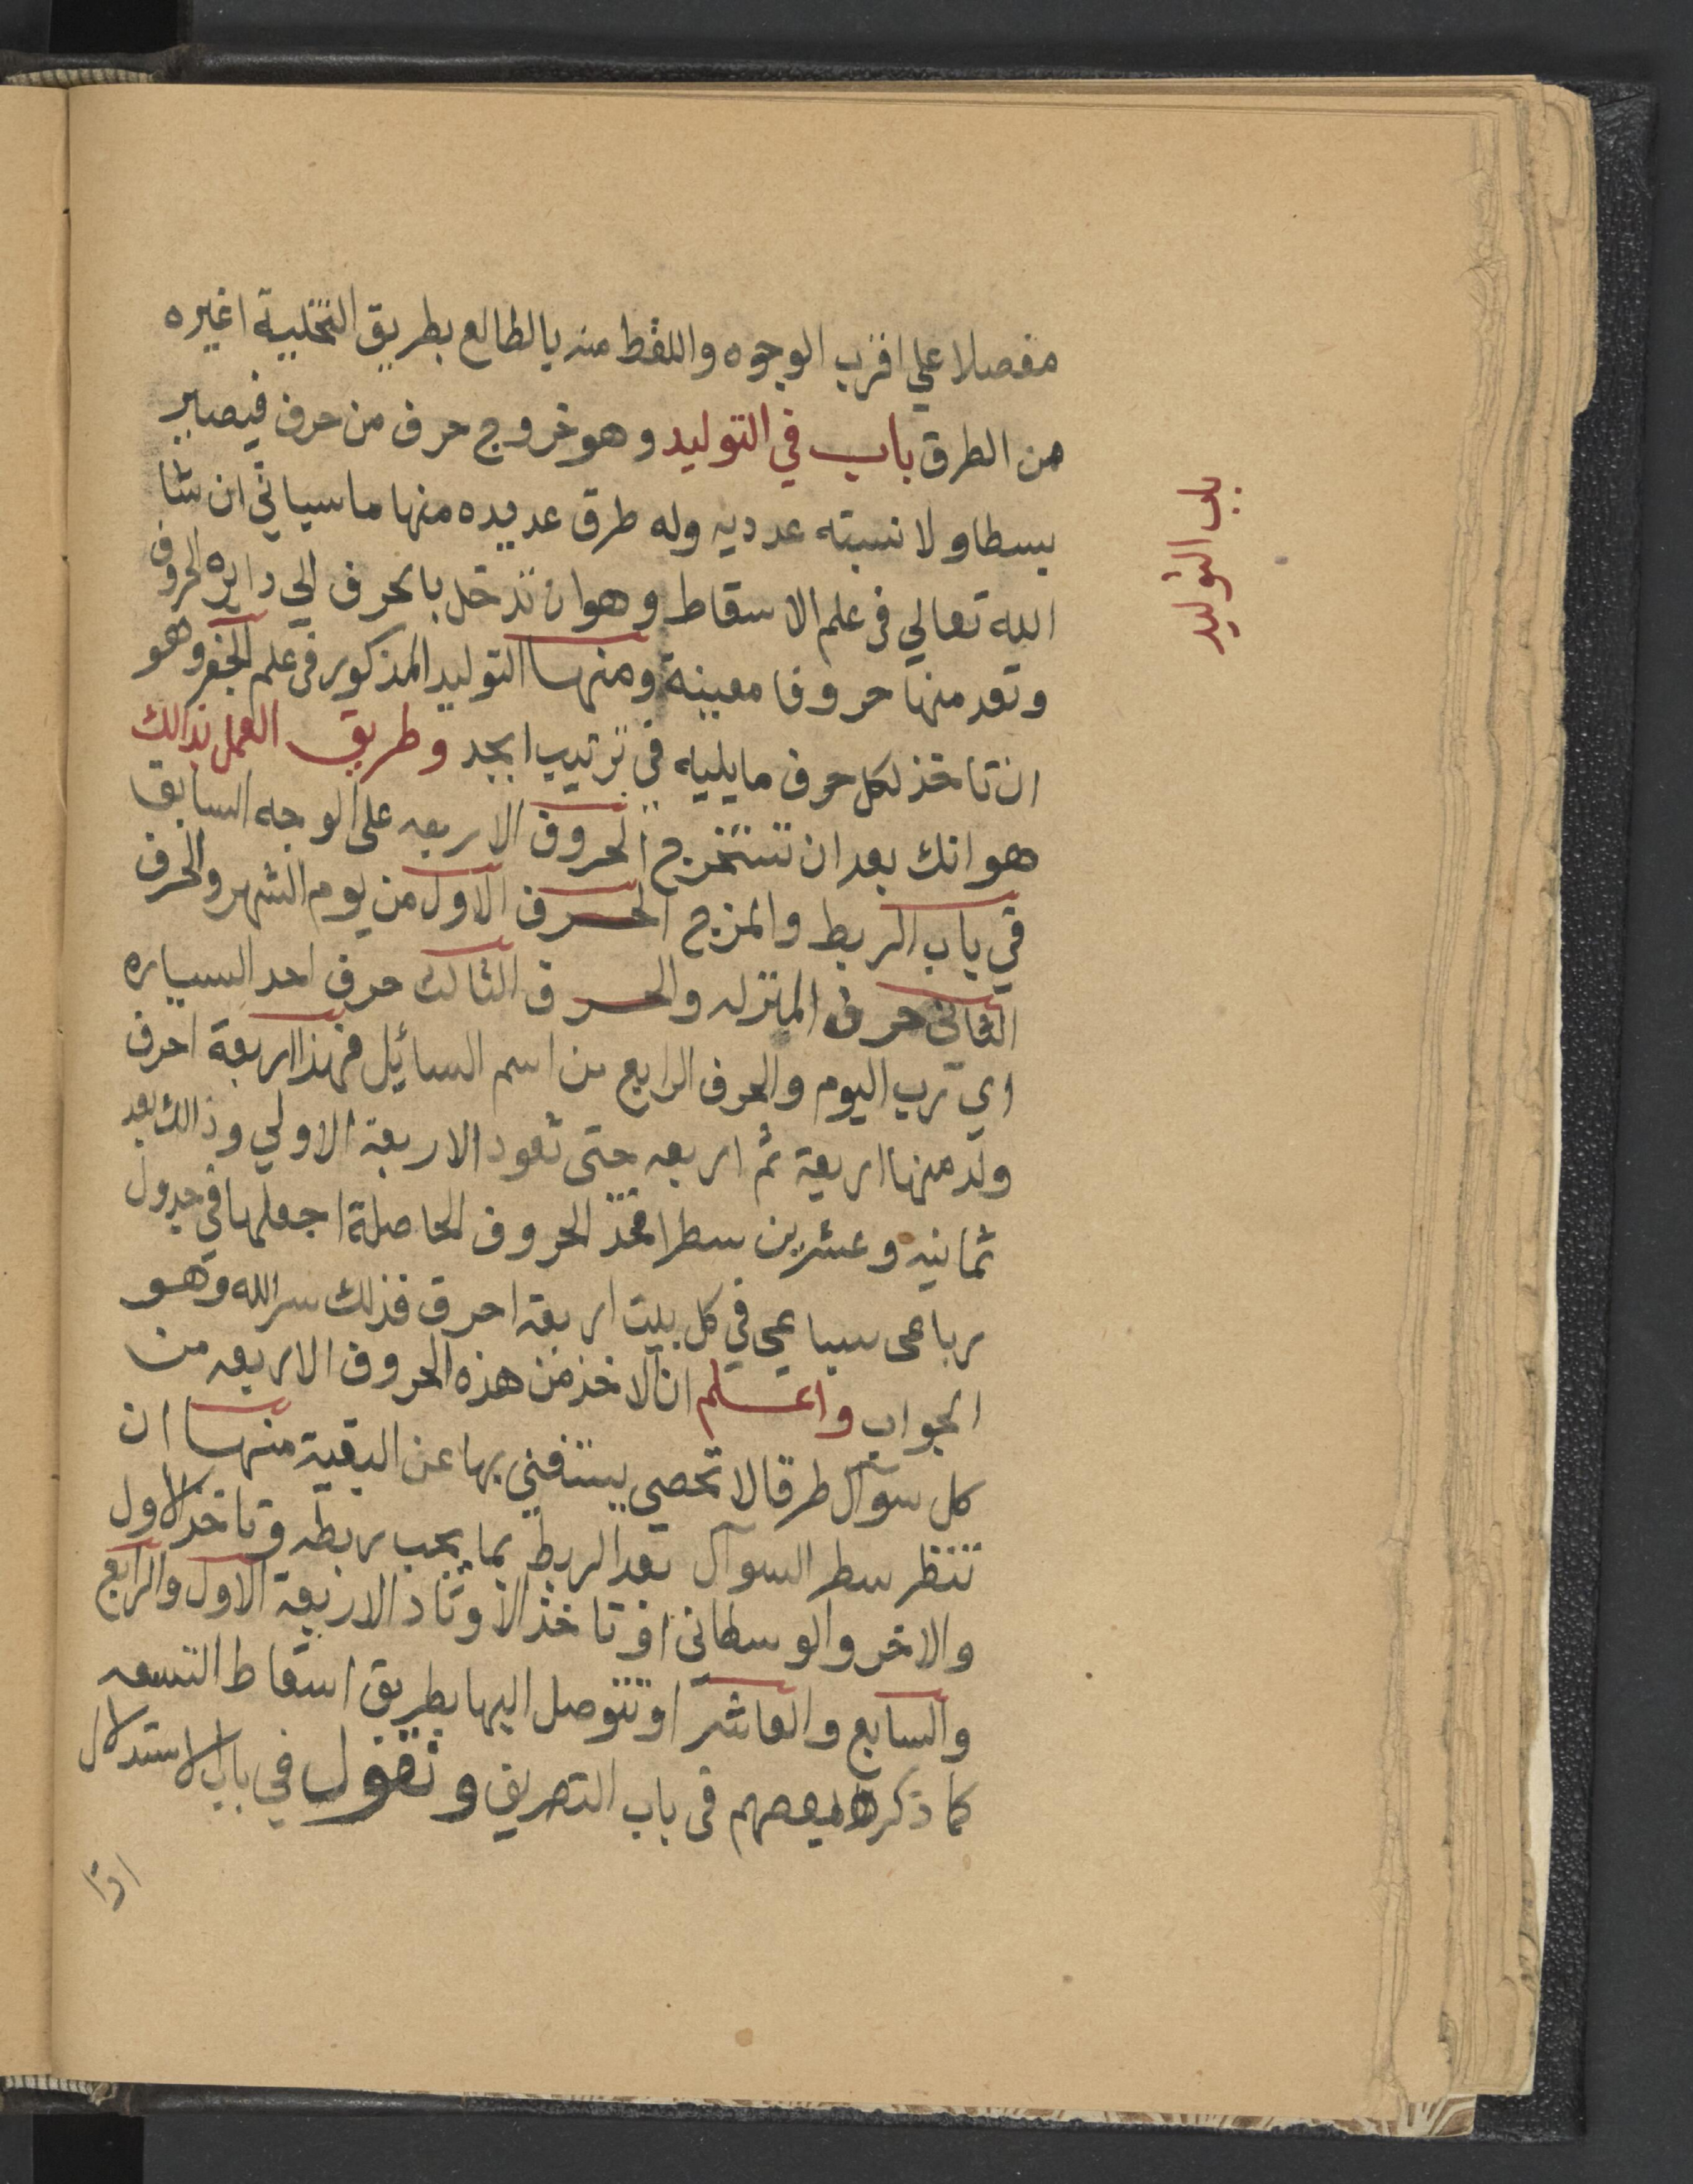 مفصلا علي اقرب الوجوه واللقط منه بالطالع بطريق التخلية اغيره
من الطرق باب في التوليد وهو خروج حرف من حرف فيصير
بسطا ولا نسبته عدديه وله طرق عديده منها ماسياتي ان شا
الله تعالي في علم الاسقاط وهو ان تدخل بالحرف الي دايره الحروف
وتعد منها حروفا معينة ومنها التوليد المذكور في علم الجفر وهو
ان تاخذ لكل حرف مايليه في ترتيب ابجد وطريق العمل بذالك
هو انك بعد ان تستخرج الحروف الاربعه على الوجه السابق
في باب الربط والمزج الحرف الاول من يوم الشهر والحرف
الثاني حرف المنزله والحرف الثالث حرف احد السياره
اي رب اليوم والحرف الرابع من اسم السائيل فهذا اربعة احرف
ولد منها اربعة ثم اربعه حتى تعود الاربعة الاولي وذالك بعد
ثمانيه وعشرين سطرا فخذ الحروف الحاصلة اجعلها في جدول
رباعى سباعي في كل بيت اربعة احرف فذلك سرالله وهو
الجواب واعلم ان الاخذ من هذه الحروف الاربعه من
كل سوآل طرقا لا تحصي يستغني بها عن البقية منها ان
تنظر سطر السوآل بعد الربط بما يجب ربطه وتاخذ الاول
والاخر والوسطاني او تاخذ الاوتاد الاربعة الاول والرابع
والسابع والعاشر او تتوصل اليها بطريق اسقاط التسعه
كما ذكره بعضهم في باب التصريف ونقول في باب الاستدلال
اذا
باب التوليد